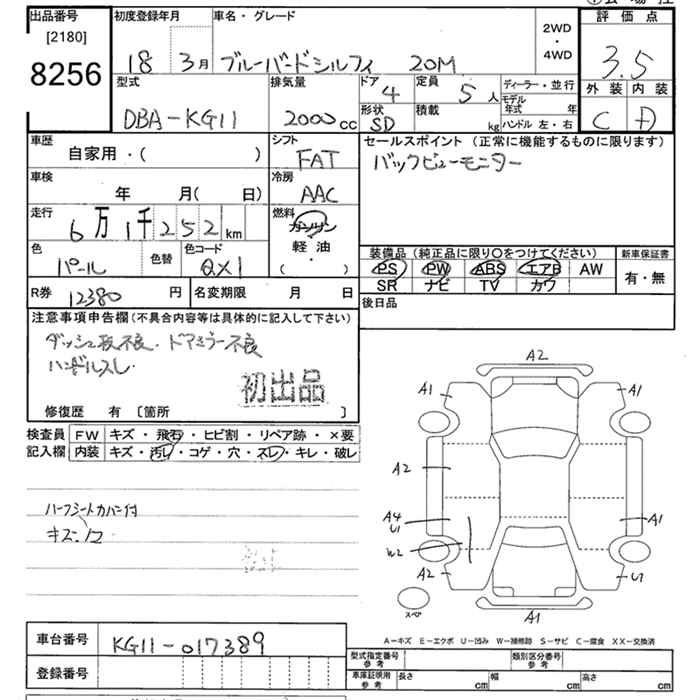 出品番号
[2180]
8256
初度登録年月
18 3月
車名・グレード
ブルーバードシルフィ 20M
2WD
・
4WD
評価点
3.5
外装 内装
C D
型式
DBA-KG11
排気量
2000cc
ドア 4
形状 SD
定員 5人
積載 kg
ディーラー・並行
モデル年式 年
ハンドル 左・右
車歴
自家用・( )
シフト
FAT
セールスポイント(正常に機能するものに限ります)
バックビューモニター
車検
年 月( 日)
冷房
AAC
走行
6万1千252km
燃料
ガソリン
軽油・
( )
色
パール
色替
色コード
QX1
装備品(純正品に限り○をつけてください)
PS PW ABS エアB AW
SR ナビ TV カワ
新車保証書
有・無
R券 12380円
名変期限 月 日
後日品
注意事項申告欄(不具合内容等は具体的に記入して下さい)
ダッシュ板不良.ドアミラー不良
ハンドルスレ
初出品
修復歴 有 [箇所 ]
検査員
記入欄
FW キズ・飛石・ヒビ割・リペア跡・×要
内装 キズ・汚レ・コゲ・穴・スレ・キレ・破レ
ハーフシートカバー付
A2
A1 A1
A2
A4
U1
A1
W2
A2 U1
スペア
A1
A-キズ E-エクボ U-凹み W-補修跡 S-サビ C-腐食 XX-交換済
車台番号
KG11-017389
登録番号
型式指定番号
参考
類別区分番号
参考
車庫証明用
参考
長さ cm
幅 cm
高さ cm